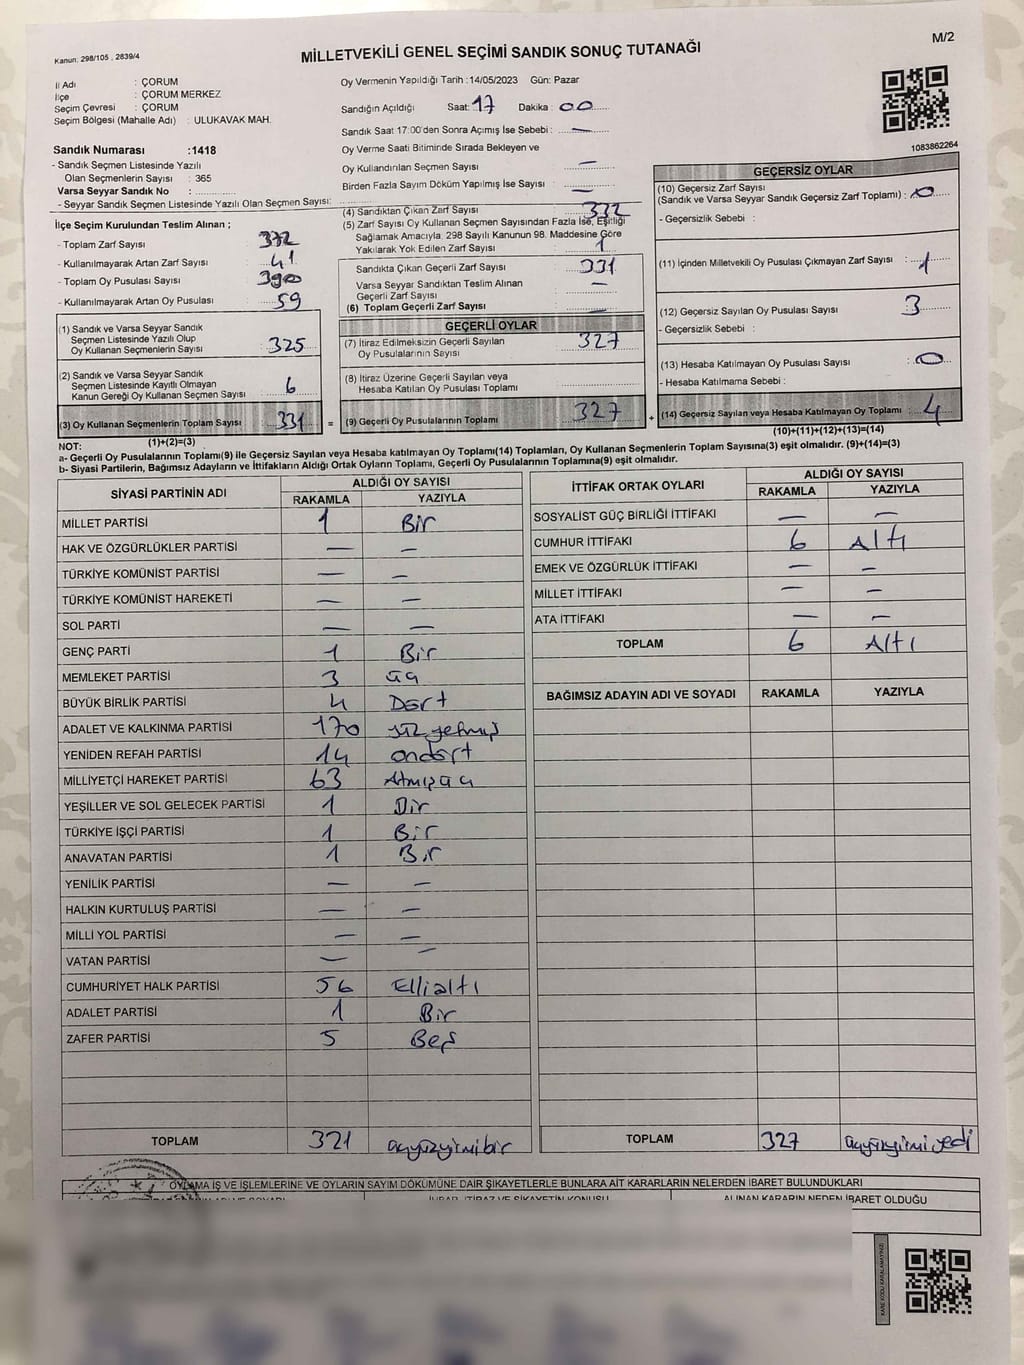 Kanun: 298/105 , 2839/4
MİLLETVEKİLİ GENEL SEÇİMİ SANDIK SONUÇ TUTANAĞI
M/2
İl Adı : ÇORUM
İlçe : ÇORUM MERKEZ
Seçim Çevresi : ÇORUM
Seçim Bölgesi (Mahalle Adı) : ULUKAVAK MAH.
Sandık Numarası :1418
- Sandık Seçmen Listesinde Yazılı
Olan Seçmenlerin Sayısı : 365
Varsa Seyyar Sandık No :
- Seyyar Sandık Seçmen Listesinde Yazılı Olan Seçmen Sayısı:
Oy Vermenin Yapıldığı Tarih :14/05/2023 Gün: Pazar
Sandığın Açıldığı Saat: 17 Dakika : 00
Sandık Saat 17:00'den Sonra Açımış İse Sebebi : —
Oy Verme Saati Bitiminde Sırada Bekleyen ve
Oy Kullandırılan Seçmen Sayısı —
Birden Fazla Sayım Döküm Yapılmış İse Sayısı —
1083862264
İlçe Seçim Kurulundan Teslim Alınan ;
- Toplam Zarf Sayısı 372
- Kullanılmayarak Artan Zarf Sayısı 41
- Toplam Oy Pusulası Sayısı 390
- Kullanılmayarak Artan Oy Pusulası 59
(1) Sandık ve Varsa Seyyar Sandık
Seçmen Listesinde Yazılı Olup
Oy Kullanan Seçmenlerin Sayısı 325
(2) Sandık ve Varsa Seyyar Sandık
Seçmen Listesinde Kayıtlı Olmayan
Kanun Gereği Oy Kullanan Seçmen Sayısı 6
(3) Oy Kullanan Seçmenlerin Toplam Sayısı 331 =
(1)+(2)=(3)
(4) Sandıktan Çıkan Zarf Sayısı 332
(5) Zarf Sayısı Oy Kullanan Seçmen Sayısından Fazla İse, Eşitliği
Sağlamak Amacıyla, 298 Sayılı Kanunun 98. Maddesine Göre
Yakılarak Yok Edilen Zarf Sayısı 1
Sandıkta Çıkan Geçerli Zarf Sayısı 331
Varsa Seyyar Sandıktan Teslim Alınan
Geçerli Zarf Sayısı —
(6) Toplam Geçerli Zarf Sayısı —
GEÇERLİ OYLAR
(7) İtiraz Edilmeksizin Geçerli Sayılan
Oy Pusulalarının Sayısı 327
(8) İtiraz Üzerine Geçerli Sayılan veya
Hesaba Katılan Oy Pusulası Toplamı
(9) Geçerli Oy Pusulalarının Toplamı 327 +
GEÇERSİZ OYLAR
(10) Geçersiz Zarf Sayısı
(Sandık ve Varsa Seyyar Sandık Geçersiz Zarf Toplamı) : 0
- Geçersizlik Sebebi :
(11) İçinden Milletvekili Oy Pusulası Çıkmayan Zarf Sayısı : 1
(12) Geçersiz Sayılan Oy Pusulası Sayısı 3
- Geçersizlik Sebebi :
(13) Hesaba Katılmayan Oy Pusulası Sayısı : 0
- Hesaba Katılmama Sebebi :
(14) Geçersiz Sayılan veya Hesaba Katılmayan Oy Toplamı 4
(10)+(11)+(12)+(13)=(14)
NOT:
a- Geçerli Oy Pusulalarının Toplamı(9) ile Geçersiz Sayılan veya Hesaba katılmayan Oy Toplamı(14) Toplamları, Oy Kullanan Seçmenlerin Toplam Sayısına(3) eşit olmalıdır. (9)+(14)=(3)
b- Siyasi Partilerin, Bağımsız Adayların ve İttifakların Aldığı Ortak Oyların Toplamı, Geçerli Oy Pusulalarının Toplamına(9) eşit olmalıdır.
SİYASİ PARTİNİN ADI ALDIĞI OY SAYISI
RAKAMLA YAZIYLA
MİLLET PARTİSİ 1 Bir
HAK VE ÖZGÜRLÜKLER PARTİSİ — —
TÜRKİYE KOMÜNİST PARTİSİ — —
TÜRKİYE KOMÜNİST HAREKETİ — —
SOL PARTİ — —
GENÇ PARTİ 1 Bir
MEMLEKET PARTİSİ 3 üç
BÜYÜK BİRLİK PARTİSİ 4 Dört
ADALET VE KALKINMA PARTİSİ 170 yüz yetmiş
YENİDEN REFAH PARTİSİ 14 ondört
MİLLİYETÇİ HAREKET PARTİSİ 63 Atmışüç
YEŞİLLER VE SOL GELECEK PARTİSİ 1 Bir
TÜRKİYE İŞÇİ PARTİSİ 1 Bir
ANAVATAN PARTİSİ 1 Bir
YENİLİK PARTİSİ — —
HALKIN KURTULUŞ PARTİSİ — —
MİLLİ YOL PARTİSİ — —
VATAN PARTİSİ — —
CUMHURİYET HALK PARTİSİ 56 Ellialtı
ADALET PARTİSİ 1 Bir
ZAFER PARTİSİ 5 Beş
TOPLAM 321 üçyüzyirmibir
İTTİFAK ORTAK OYLARI ALDIĞI OY SAYISI
RAKAMLA YAZIYLA
SOSYALİST GÜÇ BİRLİĞİ İTTİFAKI — —
CUMHUR İTTİFAKI 6 Altı
EMEK VE ÖZGÜRLÜK İTTİFAKI — —
MİLLET İTTİFAKI — —
ATA İTTİFAKI — —
TOPLAM 6 Altı
BAĞIMSIZ ADAYIN ADI VE SOYADI RAKAMLA YAZIYLA
TOPLAM 327 üçyüzyirmi yedi
OYLAMA İŞ VE İŞLEMLERİNE VE OYLARIN SAYIM DÖKÜMÜNE DAİR ŞİKAYETLERLE BUNLARA AİT KARARLARIN NELERDEN İBARET BULUNDUKLARI
ALINAN KARARIN NEDEN İBARET OLDUĞU